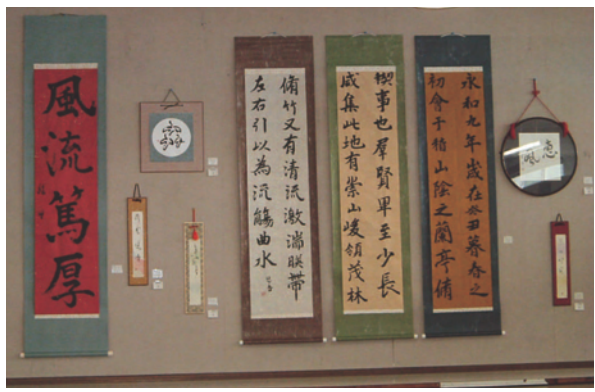 惠風
永和九年歲在癸丑暮春之
初會于稽山陰之蘭亭脩
禊事也羣賢畢至少長
咸集此地有崇山峻領茂林
脩竹又有清流激湍暎帶
左右引以為流觴曲水
風流篤厚